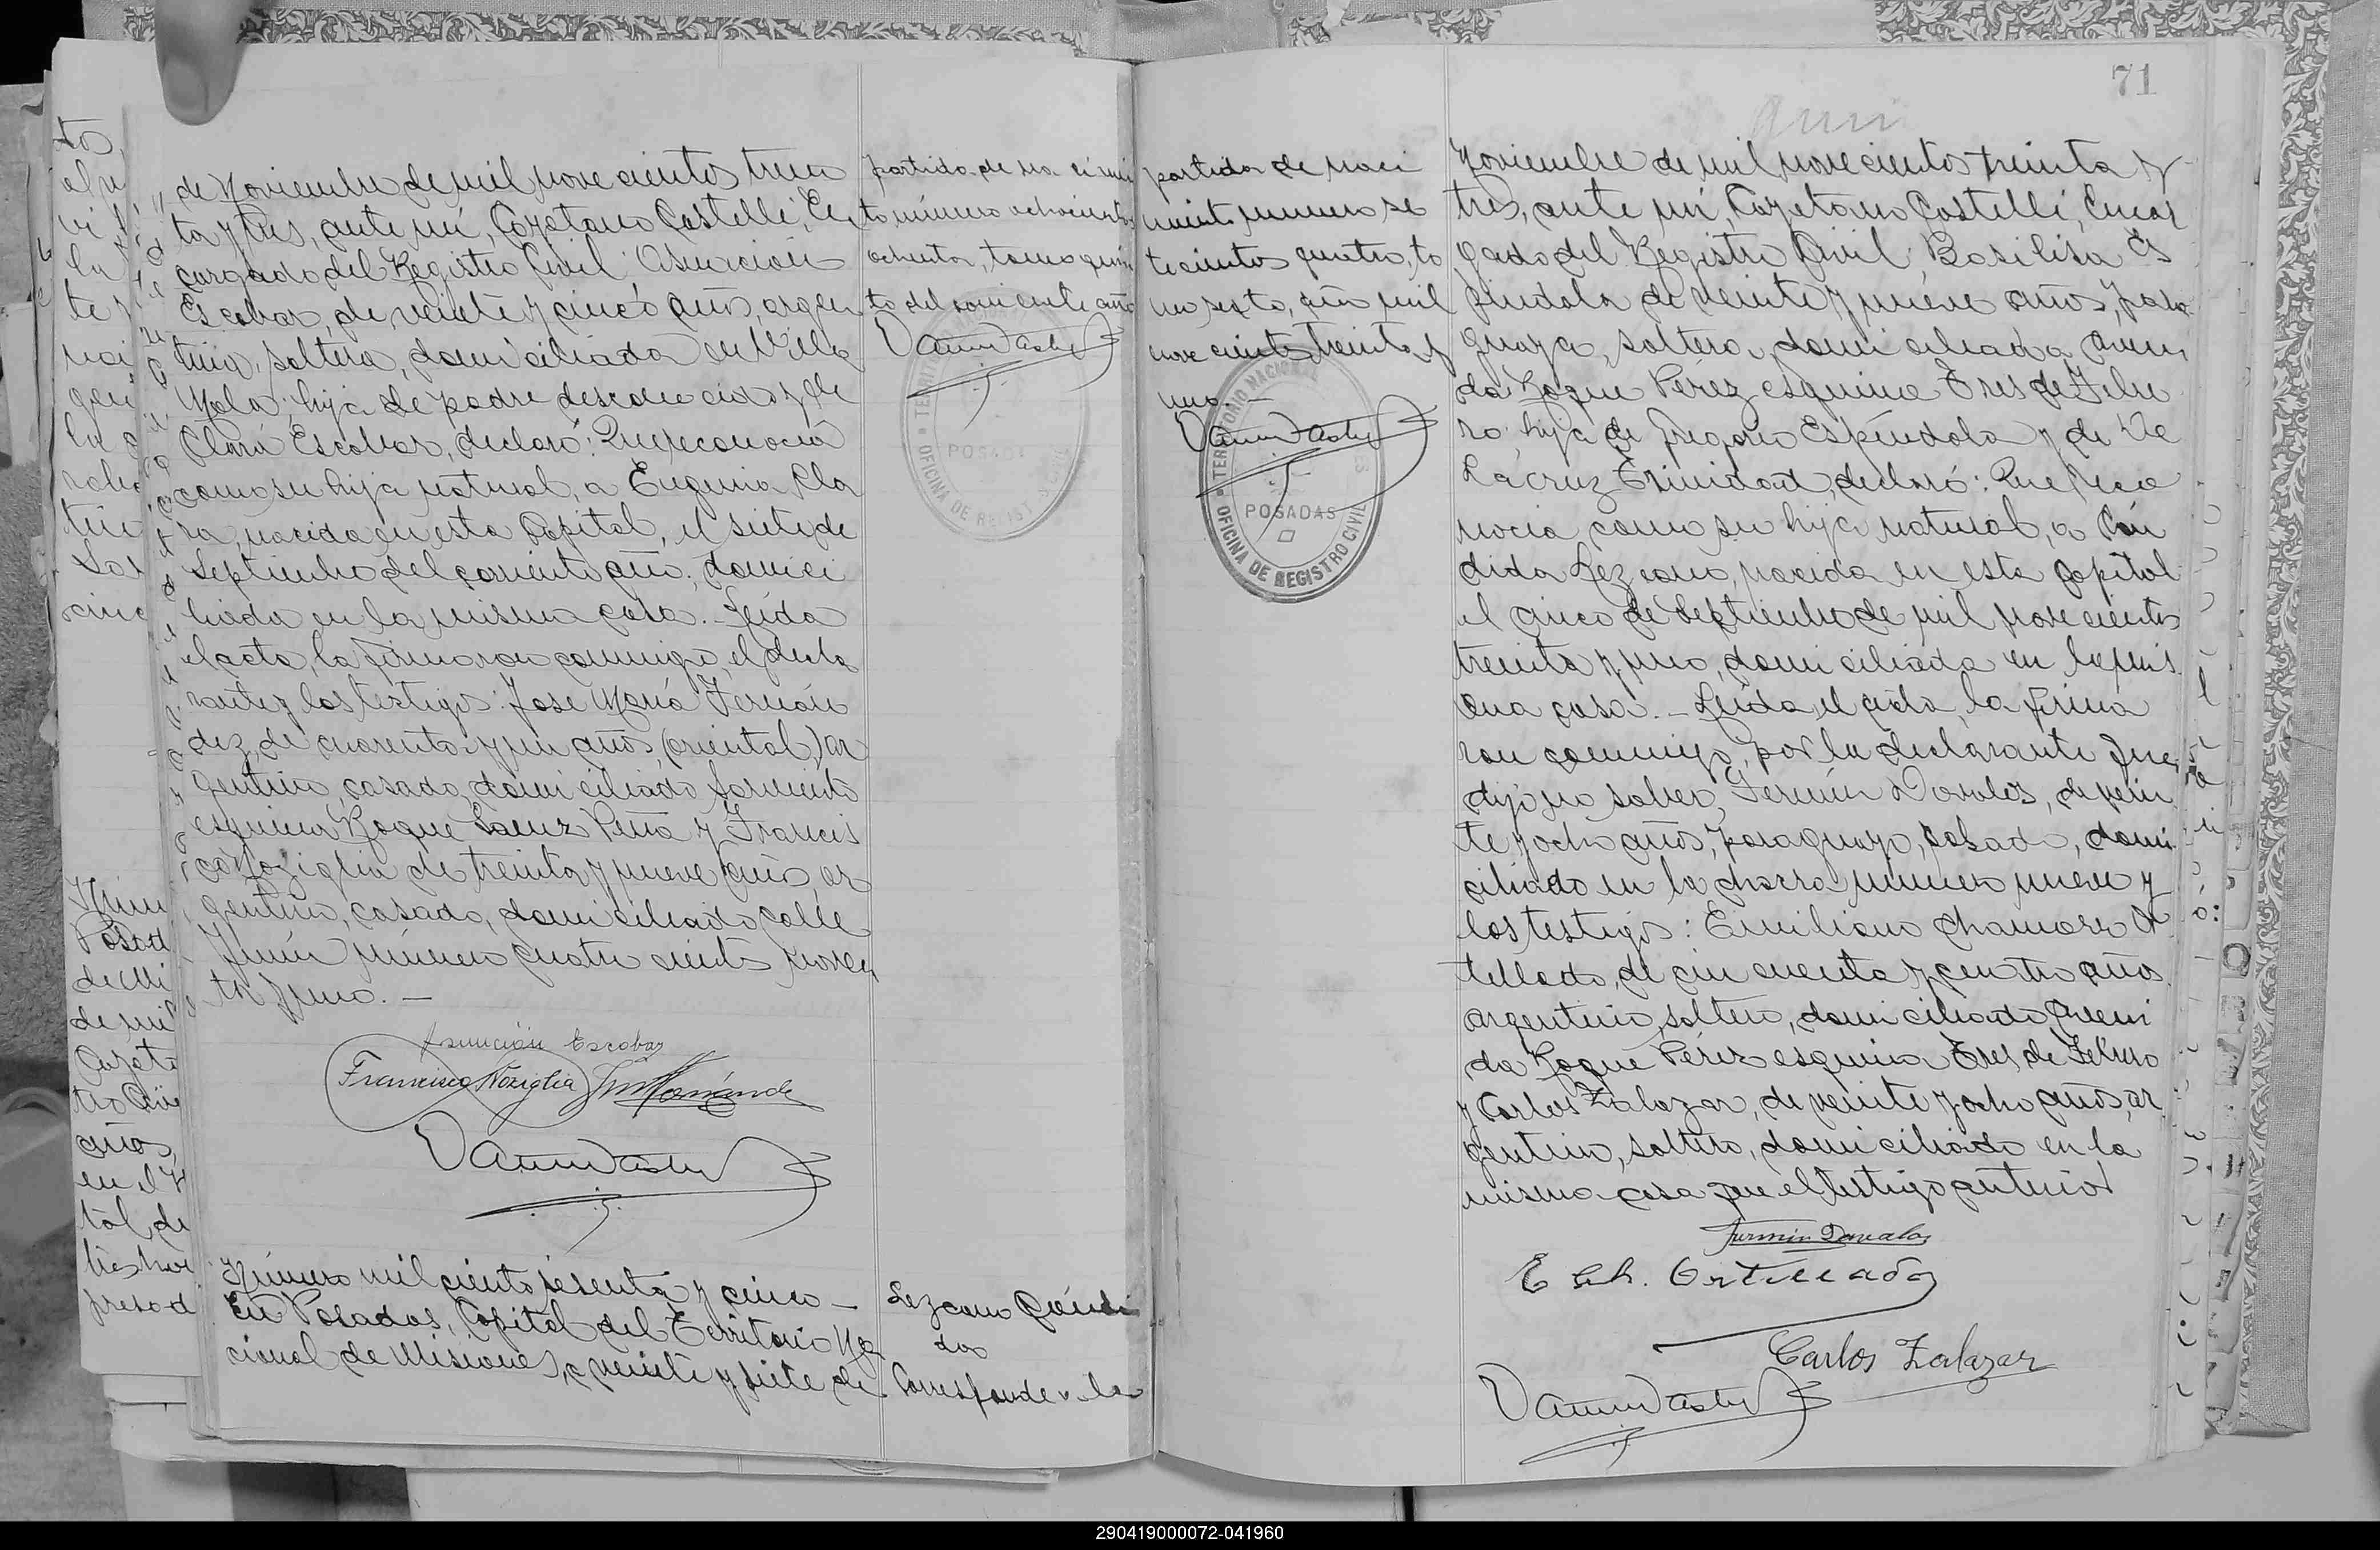 de Noviembre de mil novecientos trein
ta y tres, ante mí, Cayetano Castelli, En
cargado del Registro Civil Asunción
Escobar, de veinte y cinco años, argen
tina, soltera, domiciliada en Villa
Mola, hija de padre desconocido y de
Clara Escobar, declaró: Que reconocia
como su hija natural, a Eugenia Cla
ra, nacida en esta Capital, el siete de
Septiembre del corriente año, domici
liada en la misma casa.- Leída
el acta, la firmaron conmigo, el decla
rante y los testigos: Jose María Fernán
dez, de cuarenta y un años, (oriental,) ar
gentino, casado, domiciliado Sarmiento
esquina Roque Saenz Peña y Francis
co Noziglia de treinta y nueve años, ar
gentino, casado, domiciliado calle
Junín número cuatrocientos noven
ta y uno.-
Asunción Escobar
Francisco Noziglia
partida de nacimi
to número ochocientos
ochenta, tomo quin
to del corriente año
OFICINA DE REGIST
POSADA
Número mil ciento sesenta y cinco-
En Posadas, Capital del Territorio Na
cional de Misiones, a veinte y siete de
Lezcano Cándi
da
Corresponde a la
partida de naci
miento número se
tecientos cuatro, to
mo sexto, año mil
novecientos treinta y
uno.-
TERRITORIO NACIONAL
POSADAS
OFICINA DE REGISTRO CIVIL
71
Noviembre de mil novecientos treinta y
tres, ante mí, Cayetano Castelli, Encar
gado del Registro Civil, Basilisa Es
píndola de veinte y nueve años, para
guaya, soltera, domiciliada Aveni
da Roque Pérez esquina Tres de Febre
ro, hija de Gregorio Espíndola y de De
Lacruz Trinidad, declaró: Que reco
nocia como su hija natural, a Cán
dida Lezcano, nacida en esta Capital
el cinco de Septiembre de mil novecientos
treinta y uno, domiciliada en la mis
ma casa.- Leída el acta, la firma
ron conmigo, por la declarante que
dijo no saber, Fermín Dovalos, de vein
te y ocho años, paraguayo, casado, domi
ciliado en la chacra número nueve y
los testigos: Emiliano Chamorro Or
tellado, de cincuenta y cuatro años
argentino, soltero, domiciliado Aveni
da Roque Pérez esquina Tres de Febrero
y Carlos Zalazar, de veinte y ocho años, ar
gentino, soltero, domiciliado en la
misma casa que el testigo anterior
Fermin Davalos
E Ch. Ortellado
Carlos Zalazar
290419000072-041960